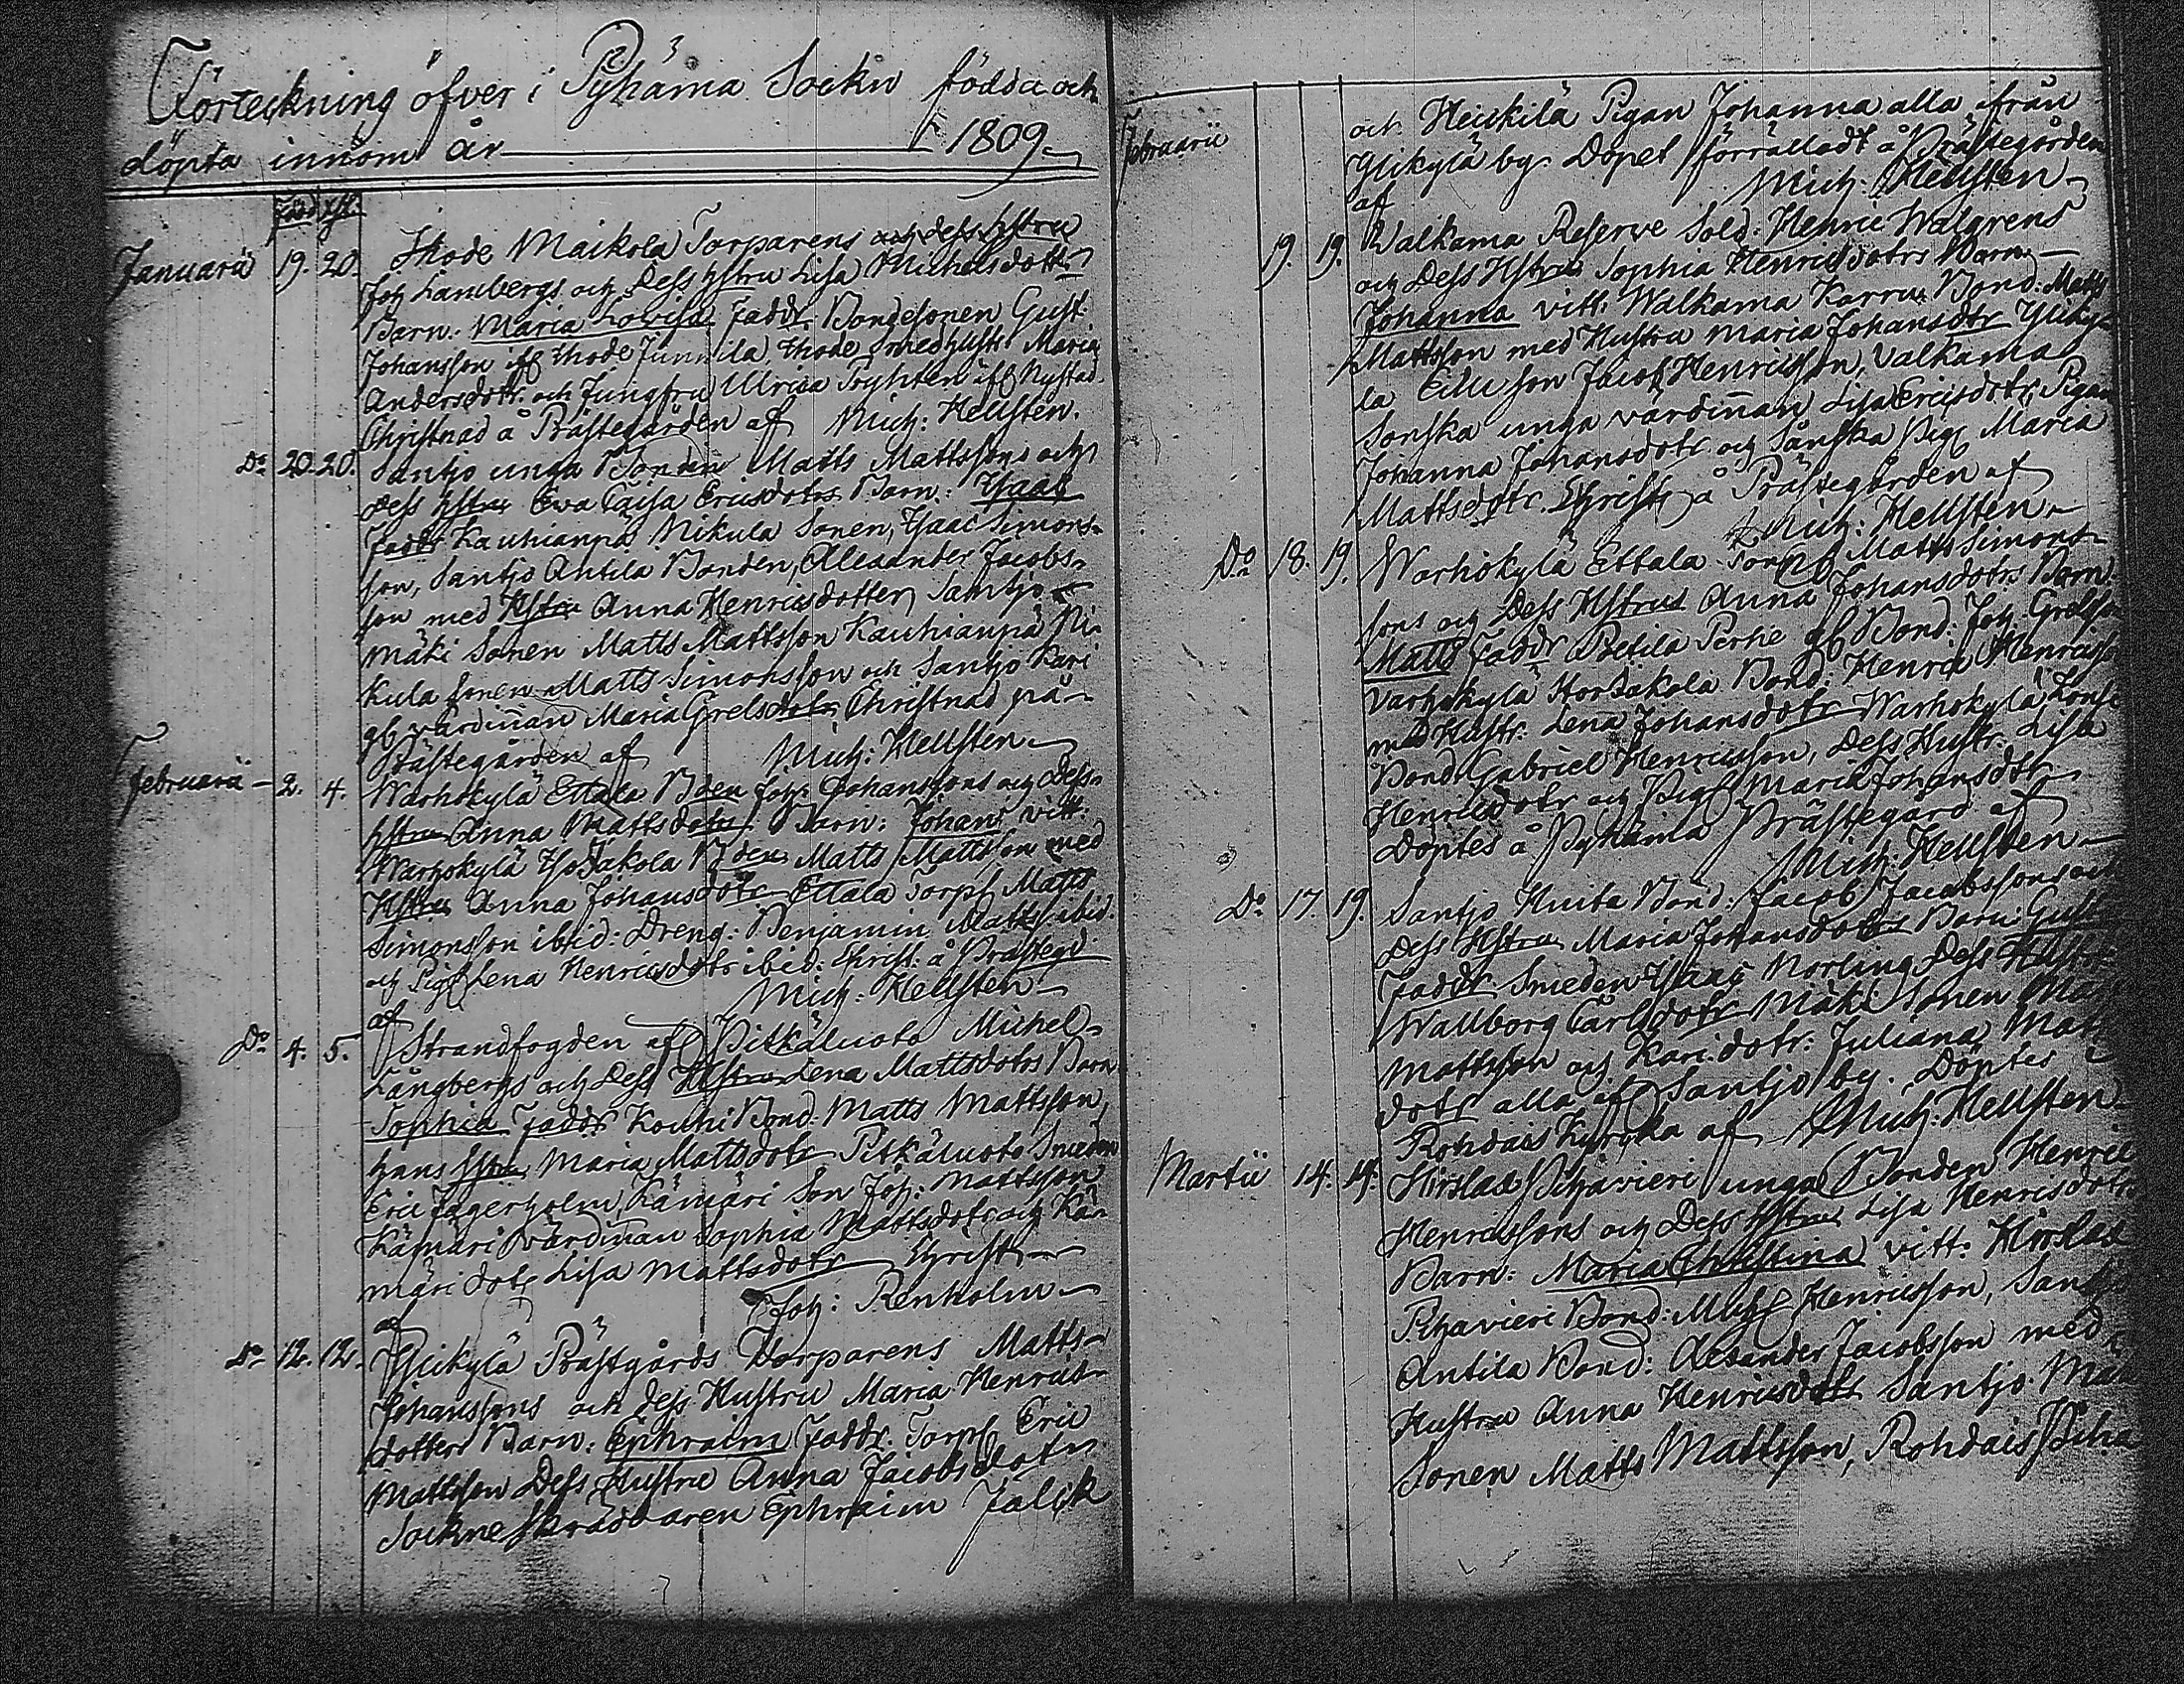 Förteckning öfver i Pyhäma Sockn födda och
döpta innom år 1809.
född Xst.
Januarii 19. 20. Ihode Maikola Torparens och dess Hstru
Joh Lambergs och Dess Hstru Lisa Michelsdotts
Barn: Maria Lovisa Faddr. Bondesonen Gust.
Johansson ifr Ihode Junnila, Ihode smed Hustr Maria
Andersdotr. och Jungfru Ulrica Poyhten ifr Nystad.
Christnad å Prästegården af Mich: Hellsten.
Do 20. 20. Santjo unga Bonden Matts Mattssons och
dess Hstrus Eva Caisa Ericsdotrs Barn: Isaac
Faddr Kauhianpä Nikula Sonen, Isaac Simons-
son, Santjo Antila Bonden, Alexander Jacobs-
son med Hstru Anna Henricsdotter, Santjo
Mäki Sonen Matts Mattsson Kauhianpä Ni-
kula sonen Matts Simonsson och Santjo Kari
gb värdinnan Maria Grelsdotr Christnad på
Prästegården af Mich: Hellsten
Februarii 2. 4. Warhokylä Ettala Bden Joh: Johanssons och Dess
Hstrus Anna Mattsdotrs Barn: Johans vitt:
Warhokylä IsoJakola Bden Matts Mattsson med
Hstru Anna Johansdotr Ettala Torp Matts
Simonsson ibid: Dreng: Benjamin Matts ibid.
och Pig Lena Henricsdotr ibid: Christ: å Prästegd.
af Mich: Hellsten
Do 4. 5. Strandfogden af Pitkäluoto Michel
Långbergs och Dess Hstrus Lena Mattsdotrs Barn
Sophia Faddr Kouhi Bond: Matts Mattsson,
hans Hstru Maria Mattsdotr Pitkäluoto Smeden
Eric Jägerholm, Kämäri Son Joh: Mattsson
Kämäri värdinnan Sophia Mattsdotr och Kä-
märi dotr Lisa Mattsdotr Christ
af Joh: Renholm
Do 12. 12. Ylikylä Prästgårds Torparens Matts
Johanssons och dess Hustru Maria Henrics-
dotters Barn: Ephraim Faddr. Torp Eric
Mattsson Dess Hustru Anna Jacobsdotr
Sockneskräddaren Ephraim Falck
Februarii
och Heickilä Pigan Johanna alla ifrån
Ylikylä by. Dopet förrättadt å Prästegården
af Mich: Hellsten
19. 19. Walkama Reserve Sold: Henric Walgrens
och Dess Hstrus Sophia Henricsdotrs Barn
Johanna vitt: Walkama Karru Bond: Matts
Mattsson med Hustru Maria Johansdotr Yliky-
la son Jacob Henricsson, Valkama
Sonska unga värdinnan Lisa Ericsdotr, Pigan
Johanna Johansdotr och Sånska Pig Maria
Mattsdotr. Christ å Prästegården af
Mich: Hellsten
Do 18. 19. Warhokylä Ettala Torp Matts Simons-
sons och Dess Hstrus Anna Johansdotrs Barn:
Matts Faddr Pertie gb Bond: Joh: Grelsson
Varhokylä Bond: Henric Henricsson
med Hustr: Lena Johansdotr Warhokylä
Bond: Gabriel Henricsson, Dess Hustr: Lisa
Henricsdotr och Pig Maria Johansdotr
Döptes å Pyhäma Prästegård af
Mich: Hellsten
Do 17. 19. Santjo Bond: Jacob Jacobssons och
Dess Hstrus Maria Johansdotrs Barn:
Faddr. Smeden Isaac Norling Dess
Wallborg Carlsdotr Mäki Sonen
Mattsson och Kari dotr: Juliana
dotr alla af Santjo by. Döptes i
Rohdais Kyrcka af Mich: Hellsten
Martii 14. 14. Hirslax Pihavieri unga Bonden Henric
Henricssons och Dess Hstrus Lisa Henricsdotrs
Barn: Maria Christina vitt: Hirslax
Pihavieri Bond: Mich Henricsson, Santjo
Antila Bond: Alexander Jacobsson med
Hustru Anna Henricsdotr Santjo
Sonen Matts Mattsson, Rohdais